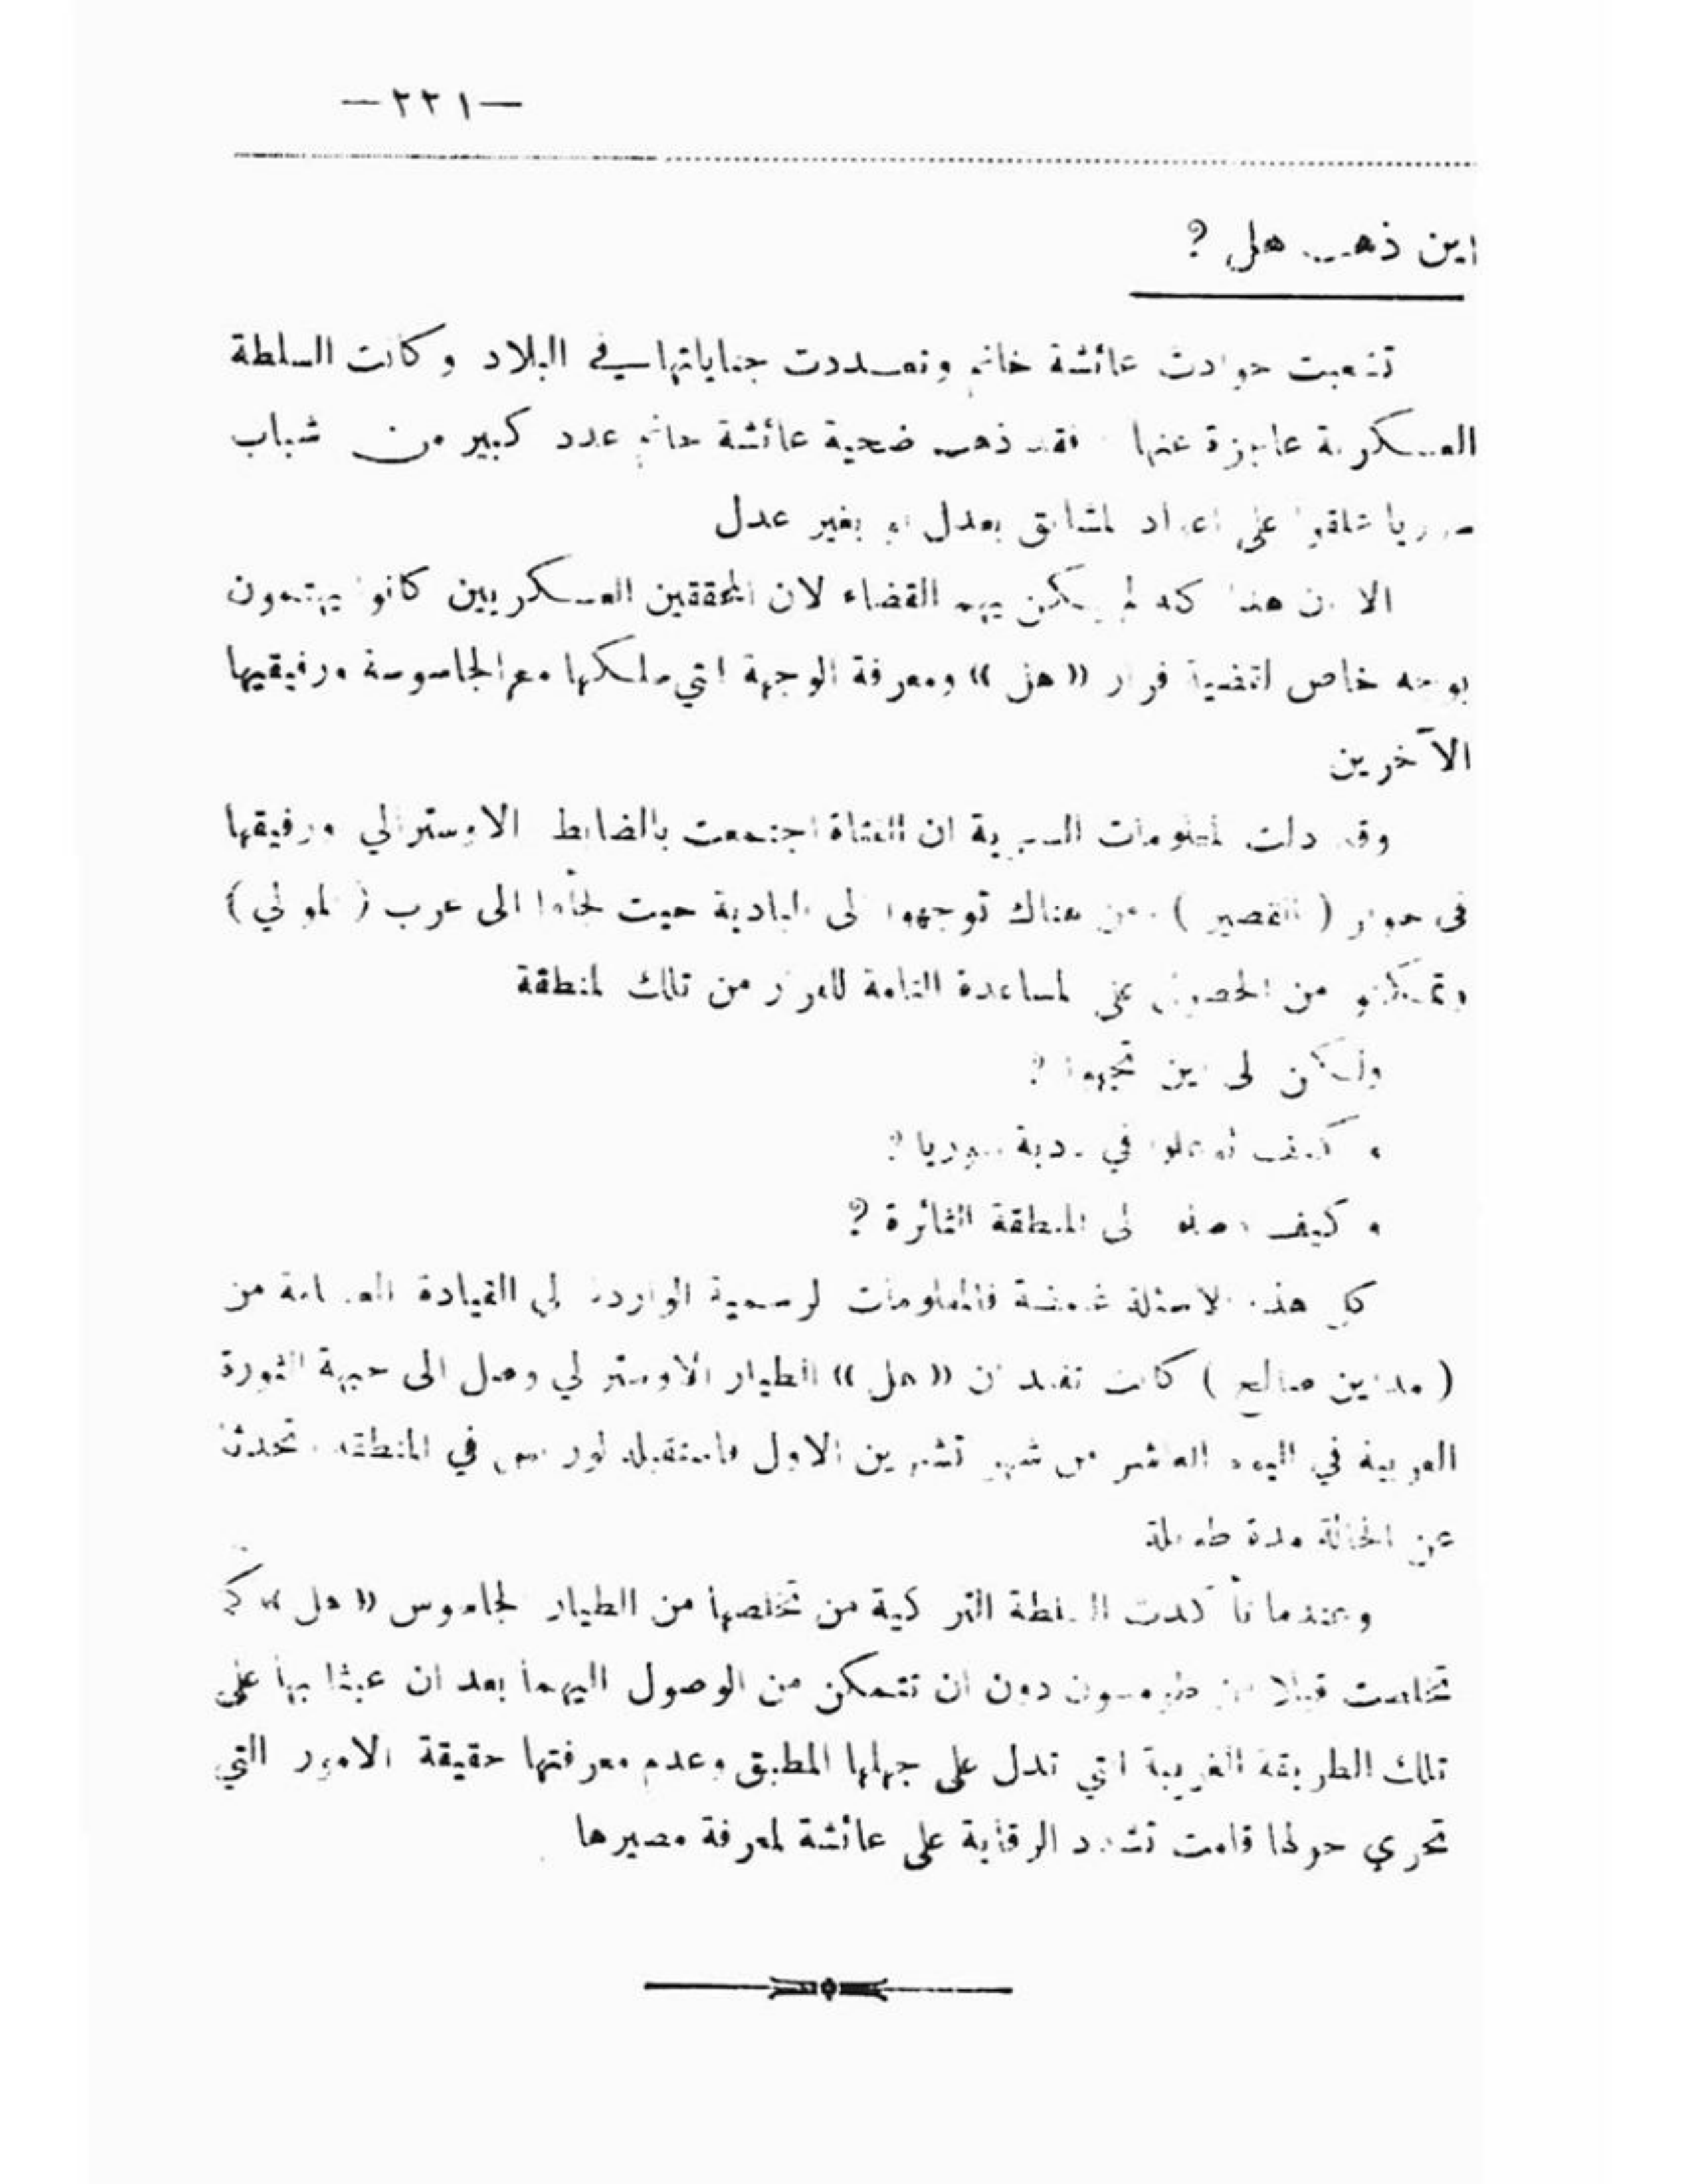 —٢٢١—
اين ذهب هل ?
تشعبت حوادث عائشة خانم وتعددت جناياتها في البلاد وكانت السلطة
العسكرية عاجزة عنها فقد ذهب ضحية عائشة خانم عدد كبير من شباب
سوريا علقوا على اعواد المشانق بعدل او بغير عدل
الا ان هذا كله لم يكن يهم القضاء لان المحققين العسكريين كانوا يهتمون
بوجه خاص لقضية فرار « هل » ومعرفة الوجهة التي سلكها مع الجاسوسة ورفيقيها
الآخرين
وقد دلت المعلومات السرية ان الفتاة اجتمعت بالضابط الاوسترالي ورفيقها
في جوار ( القصير ) ومن هناك توجهوا الى البادية حيث لجأوا الى عرب ( الموالي )
وتمكنوا من الحصول على المساعدة التامة للفرار من تلك المنطقة
ولكن الى اين اتجهوا ?
وكيف توغلوا في بادية سوريا ?
وكيف وصلوا الى المنطقة الثائرة ?
كل هذه الاسئلة غامضة فالمعلومات الرسمية الواردة الى القيادة العامة من
( مداين صالح ) كانت تفيد ان « هل » الطيار الاوسترالي وصل الى جبهة الثورة
العربية في اليوم العاشر من شهر تشرين الاول فاستقبله لورنس في المنطقة وتحدثا
عن الحالة مدة طويلة
وعندما تأكدت السلطة التركية من تخلصها من الطيار الجاسوس « هل » كما
تخلصت قبلا من طومسون دون ان تتمكن من الوصول اليهما بعد ان عبثا بها على
تلك الطريقة الغريبة التي تدل على جهلها المطبق وعدم معرفتها حقيقة الامور التي
تجري حولها قامت تشدد الرقابة على عائشة لمعرفة مصيرها